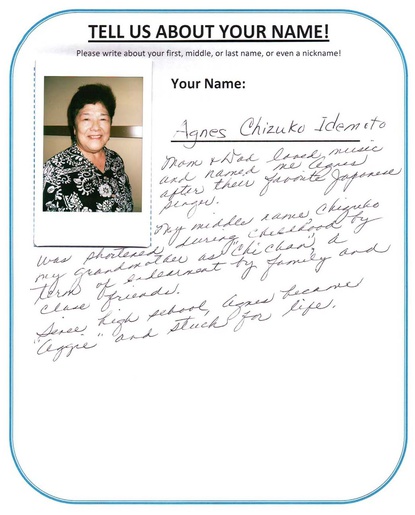 TELL US ABOUT YOUR NAME!
Please write about your first, middle, or last name, or even a nickname!
Your Name:
Agnes Chizuko Idemoto
Mom & Dad loved music
and named me Agnes
after their favorite Japanese
singer.
My middle name, Chizuko
was shortened during childhood by
my grandmother as "Chi Chan", a
term of endearment by family and
close friends.
Since high school, Agnes became
"Aggie" and stuck for life.